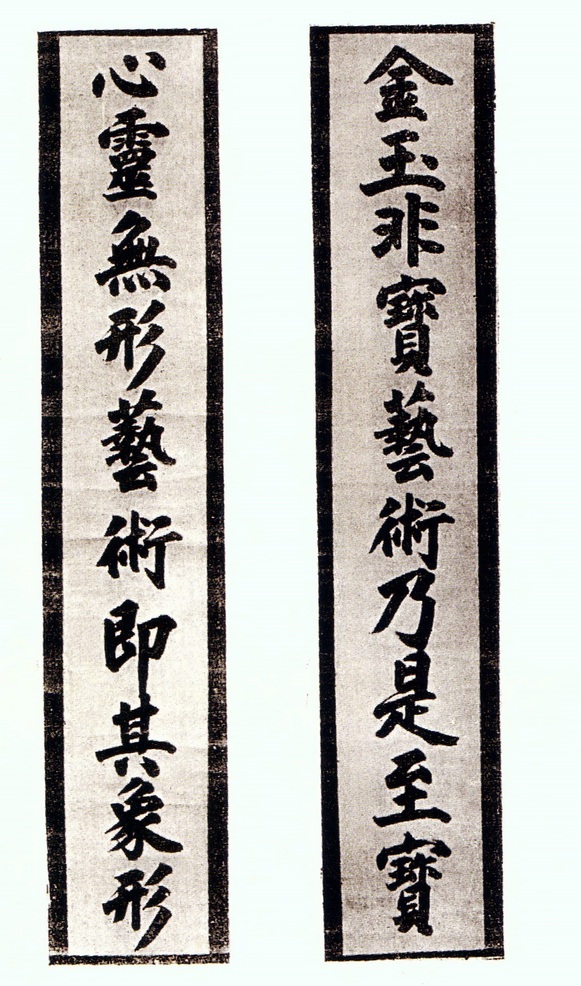 金玉非寶藝術乃是至寶
心靈無形藝術即其象形